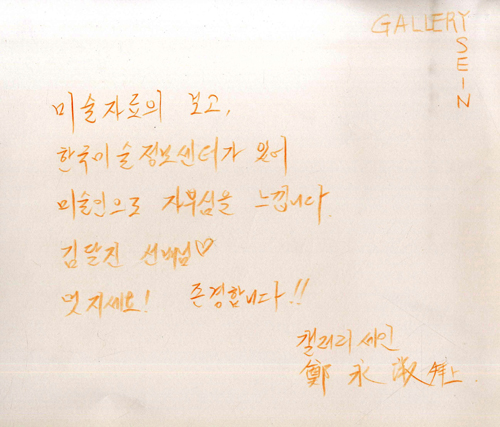 GALLERY
SEIN
미술자료의 보고,
한국미술정보센터가 있어
미술인으로 자부심을 느낍니다.
김달진 선배님♡
멋지세요! 존경합니다!!
갤러리세인
鄭 永 淑 拜上